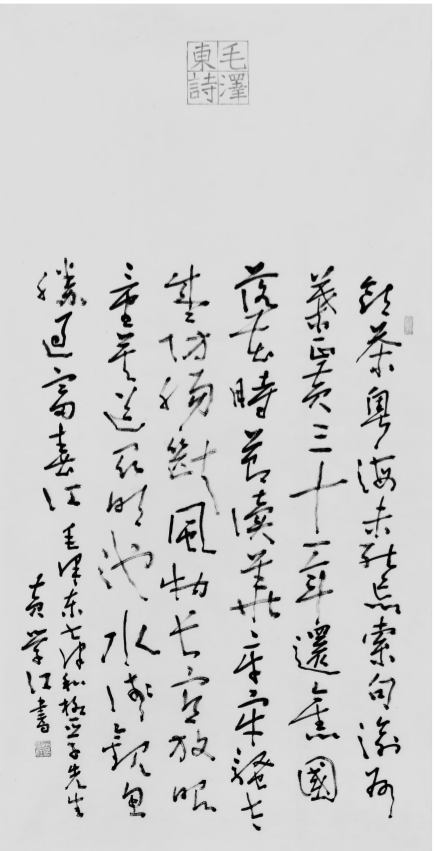 毛澤
東詩
飲茶粵海未能忘索句渝州
葉正黃三十一年還舊國
落花時節讀華章牢騷太
盛防腸斷風物長宜放眼
量莫道昆明池水淺觀魚
勝過富春江 毛澤东七律和柳亞子先生
黄學江書